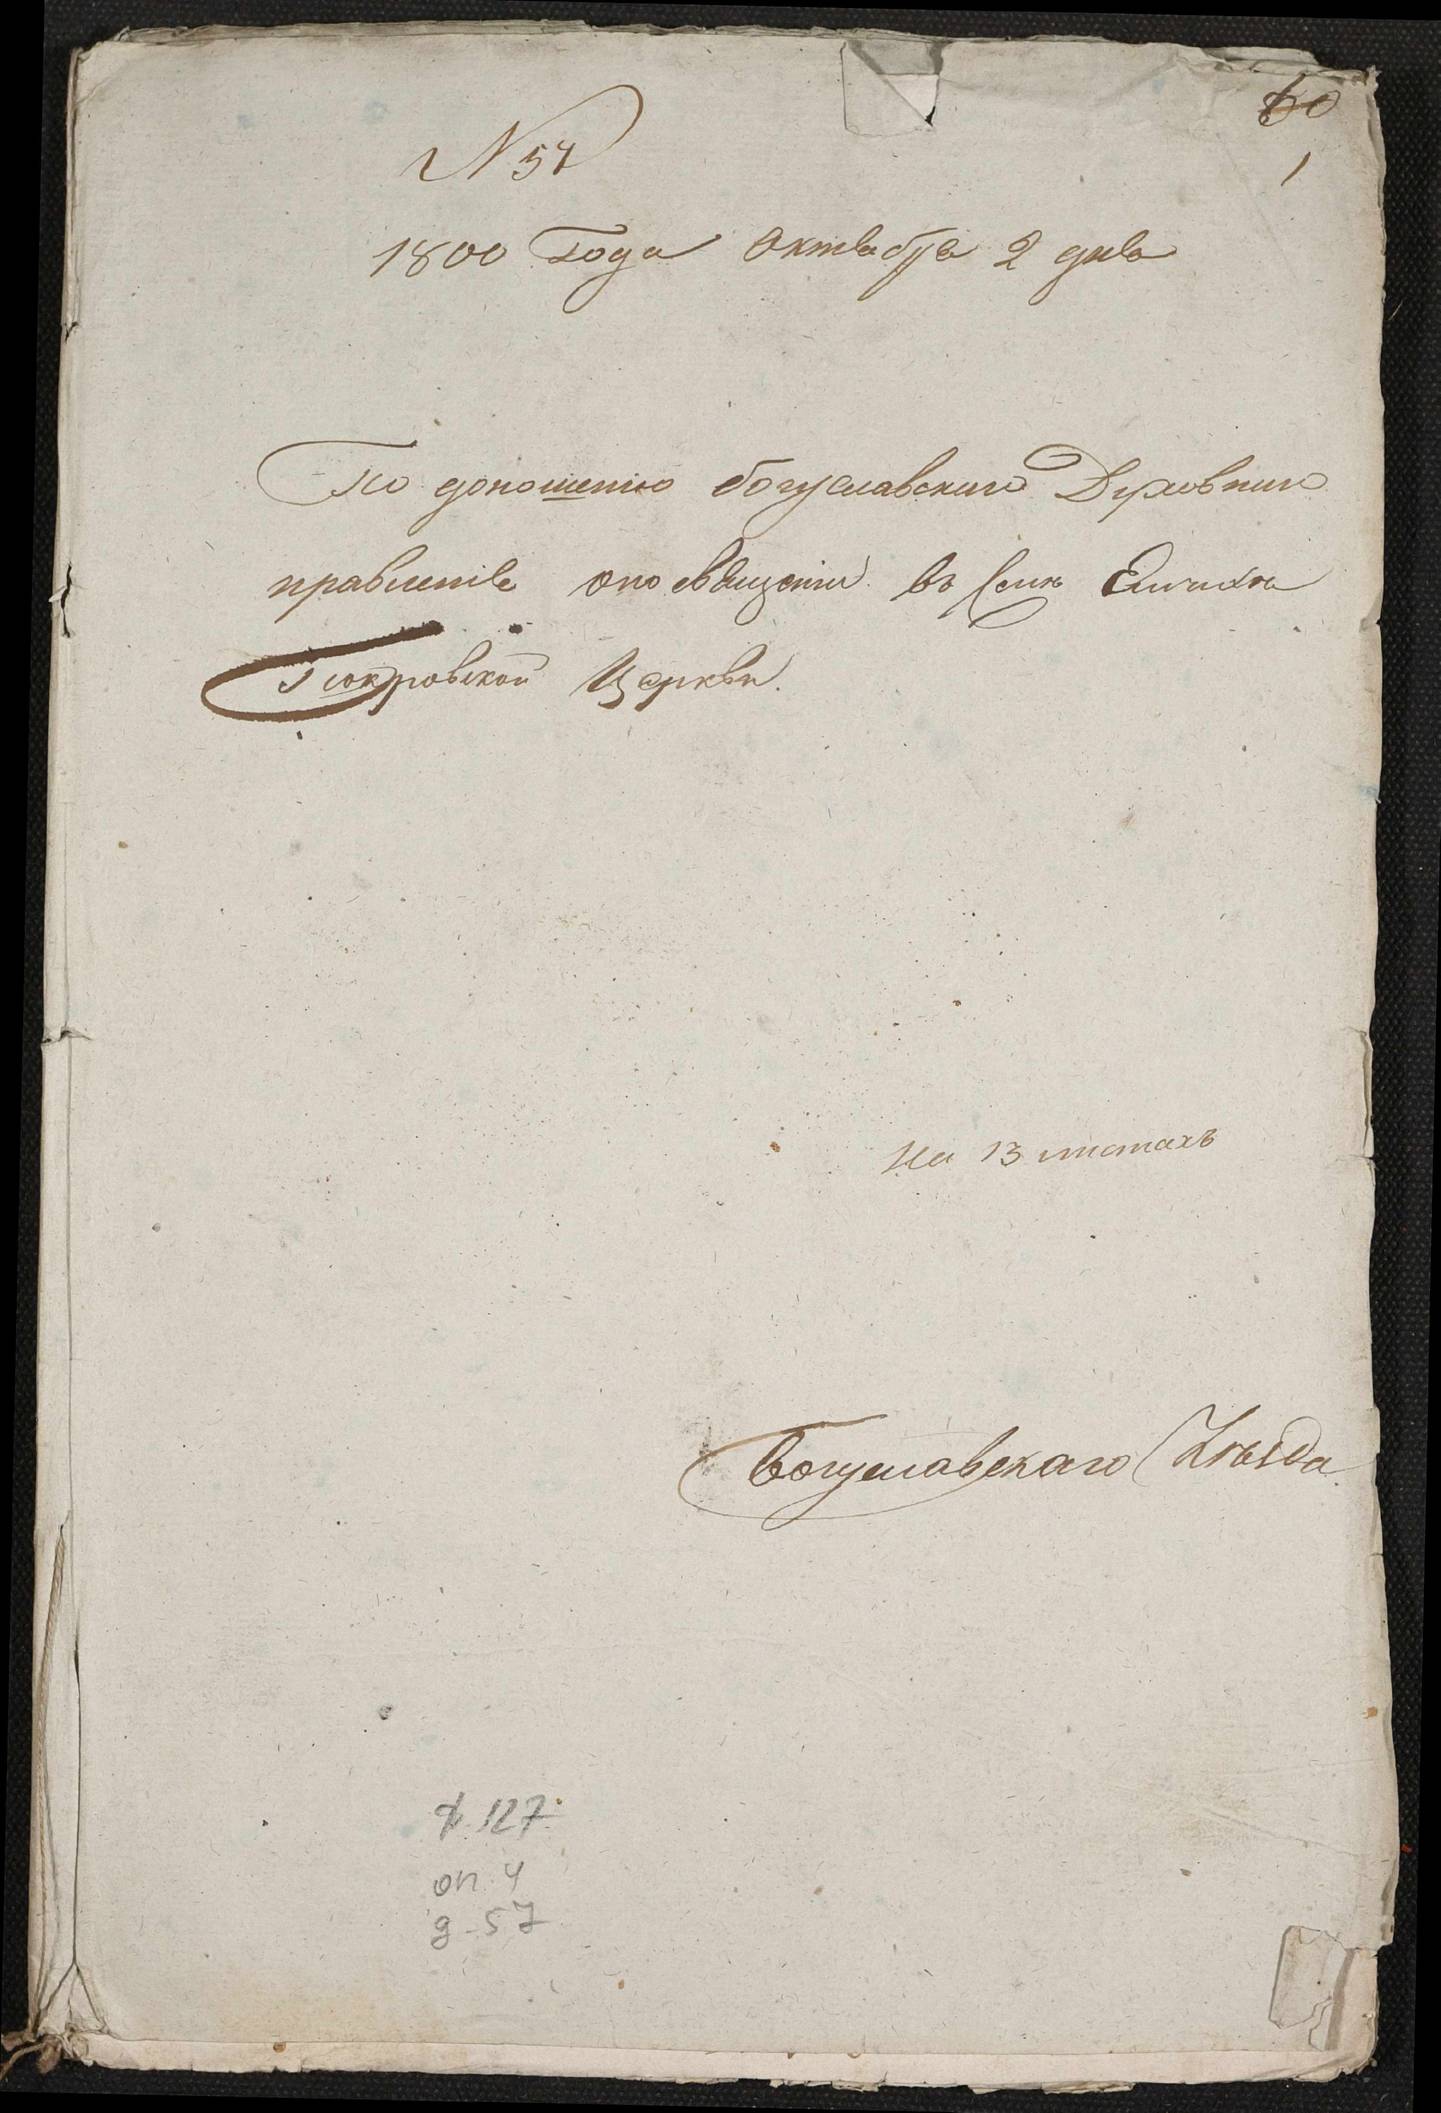 60
1
N 57
1800 Года Октября 2 дня
По доношению богуславскаго Духовнаго
правления о по священии въ Селе
Покровской Церкви.
На 13 листахъ
Богуславскаго Уѣзда
ф. 127
оп. 4
д-57